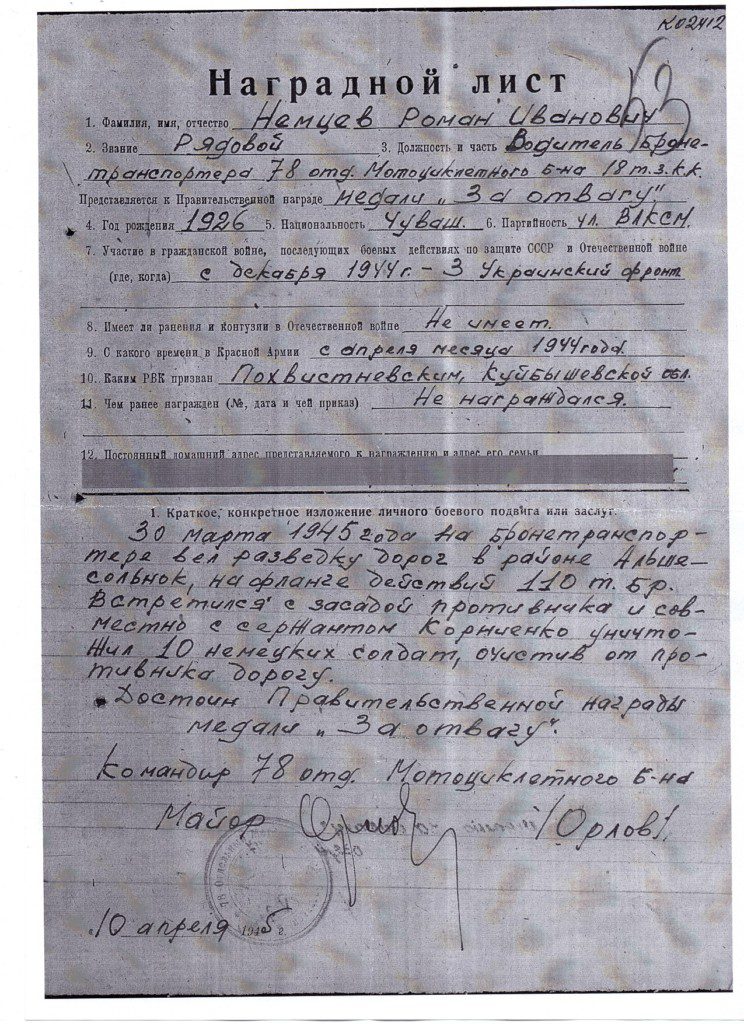 К02412
53
Наградной лист
1. Фамилия, имя, отчество Немцев Роман Иванович
2. Звание Рядовой 3. Должность и часть Водитель Броне-
транспортера 78 отд. Мотоциклетного б-на 18 т.з.к.к.
Представляется к Правительственной награде медали „За отвагу".
4. Год рождения 1926 5. Национальность Чуваш. 6. Партийность чл. ВЛКСМ.
7. Участие в гражданской войне, последующих боевых действиях по защите СССР и Отечественной войне
(где, когда) с декабря 1944г. – 3 Украинский фронт
8. Имеет ли ранения и контузии в Отечественной войне Не имеет.
9. С какого времени в Красной Армии с апреля месяца 1944 года.
10. Каким РВК призван Похвистневским, Куйбышевской обл.
11. Чем ранее награжден (№, дата и чей приказ) Не награждался.
12. Постоянный домашний адрес представляемого к награждению и адрес его семьи
1. Краткое, конкретное изложение личного боевого подвига или заслуг.
30 марта 1945 года на бронетранспор-
тере вел разведку дорог в районе Альше-
сольнок, на фланге действий 110 т. бр.
Встретился с засадой противника и сов-
местно с сержантом Корниенко уничто-
жил 10 немецких солдат, очистив от про-
тивника дорогу.
Достоин Правительственной награды
медали „За отвагу".
Командир 78 отд. Мотоциклетного б-на
Майор /Орлов/.
10 апреля 1945 г.